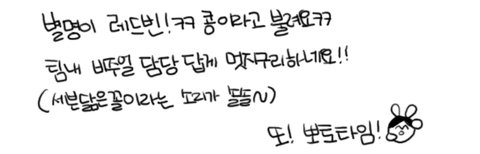 별명이 레드빈!ㅋㅋ 콩이라고 불려요ㅋㅋ
팀내 비주얼 담당 답게 멋지구리하네요!!
(세븐닮은꼴이라는 소리가 솔솔~)
또! 뽀토타임!